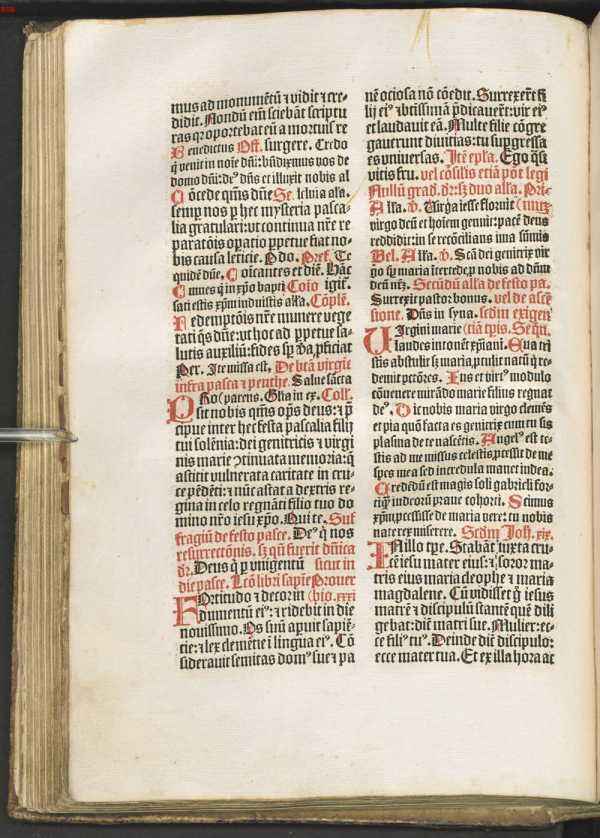 mus ad monumētū ⁊ vidit ⁊ cre-
didit. Nondū em̄ sciebāt scriptu
ras qꝛ oportebat eū a mortuis re
Benedictus Off. surgere. Credo
q̇ venit in noīe dn̄i: bn̄diximus vos de
domo dn̄i: deꝰ dn̄s et illuxit nobis al
Cōcede qs̄ms dn̄e Se. leluia alla.
semꝑ nos ꝑ hec mysteria pasca-
lia gratulari: vt continua nr̄e re
paratōis oꝑatio ꝑpetue fiat no-
bis causa leticie. P do. Pref. Te
quidē dn̄e. Cōicantes et diē. Hāc
Omnes q̇ in xp̄o bapti Coīo igit̄.
sati estis xp̄m induistis alla. Cōplē.
Redemptōis nr̄e munere vege
tati qs̄ dn̄e: vt hoc ad ꝑpetue sa-
lutis auxiliū: fides sꝑ v̄a ꝓficiat
Per. Ite missa est. De bt̄a virgīe
infra pasca ⁊ penthe. Salue sācta
Pro (parens. Gl̄ia in ex. Coll.
sit nobis qs̄ms op̄s deus: ⁊ p̄
cipue inter hec festa pascalia filij
tui solēnia: dei genitricis ⁊ virgi
nis marie ꝯtinuata memoria: q̄
astitit vulnerata caritate in cru-
ce pēdēti: ⁊ nūc astat a dextris re
gina in celo regnāti filio tuo do
mino nr̄o iesu xp̄o. Qui te. Suf
fragiū de festo pasce. Deꝰ q̇ nos
resurrectōnis. sꝫ qn̄ fuerit dn̄ica
dr̄. Deus q̇ ꝑ vnigentū sicut in
die pasce. Lcō libri sapīe Prouer
Fortitudo ⁊ decor in (bio. xxxi
dumentū eiꝰ: ⁊ ridebit in die
nouissimo. Os suū aꝑuit sapiē-
tie: ⁊ lex clemētie ī lingua eiꝰ. Cō
siderauit semitas domꝰ sue ⁊ pa
nē ociosa nō cōedit. Surrexer̄t fi
lij eiꝰ ⁊ btissimā p̄dicauer̄t: vir eiꝰ
et laudauit eā. Multe filie cōgre
gauerunt diuitias: tu supgressa
es vniuersas. Itē epl̄a. Ego q̄si
vitis fru. vel cōsilis etiā pōt legi
Nullū grad. dr̄: sꝫ duo alla. Pri-
Alla. v̄. Virga iesse floruit (mū
virgo deū et hoīem genuit: pacē deus
reddidit: in se recōcilians ima sūmis
Bel. Alla. v̄. Scā dei genitrix vir
go sꝑ maria ītercede ꝓ nobis ad dn̄m
deū nr̄ꝫ. Secūdū alla de festo pa.
Surrexit pastor bonus. vel de ascē
sione. Dn̄s in syna. scdm̄ exigen
Virgini marie (tiā tp̄is. Seq̄n.
laudes intonēt xp̄iani. Eua tri
stis abstulit sꝫ maria ꝓtulit natū q̇ re-
demit pctōres. Eius et viriꝰ modulo
cōuenere mirādo marie filius regnat
deꝰ. Dic nobis maria virgo clemēs
et pia quō facta es genitrix cum tu sis
plasma de te nascētis. Angelꝰ est te-
stis ad me missus celestis. ꝓcessit de me
spes mea sed incredula manet iudea.
Credēdū est magis soli gabrieli for-
ti q̄ꝫ iudeorū praue cohorti. Scimus
xp̄m ꝓcessisse de maria vere: tu nobis
nate rex miserere. Scdm̄ Joh. xix.
In illo tp̄e. Stabāt iuxta cru-
cē iesu mater eius: ⁊ soror ma-
tris eius maria cleophe ⁊ maria
magdalene. Cū vidisset g̊ iesus
matrē ⁊ discipulū stantē quē dili
gebat: dic̄ matri sue. Mulier: ec-
ce filiꝰ tuꝰ. Deinde dic̄ discipulo:
ecce mater tua. Et ex illa hora ac